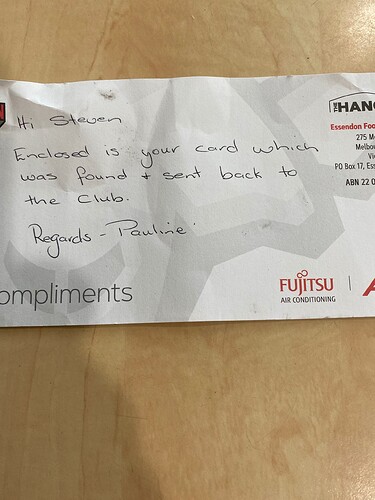 Hi Steven
Enclosed is your card which
was found + sent back to
the Club.
Regards - Pauline
THE HANG
Essendon Foo
275 M
Melbou
Vi
PO Box 17, Ess
ABN 22 0
ompliments
FUJITSU
AIR CONDITIONING
A